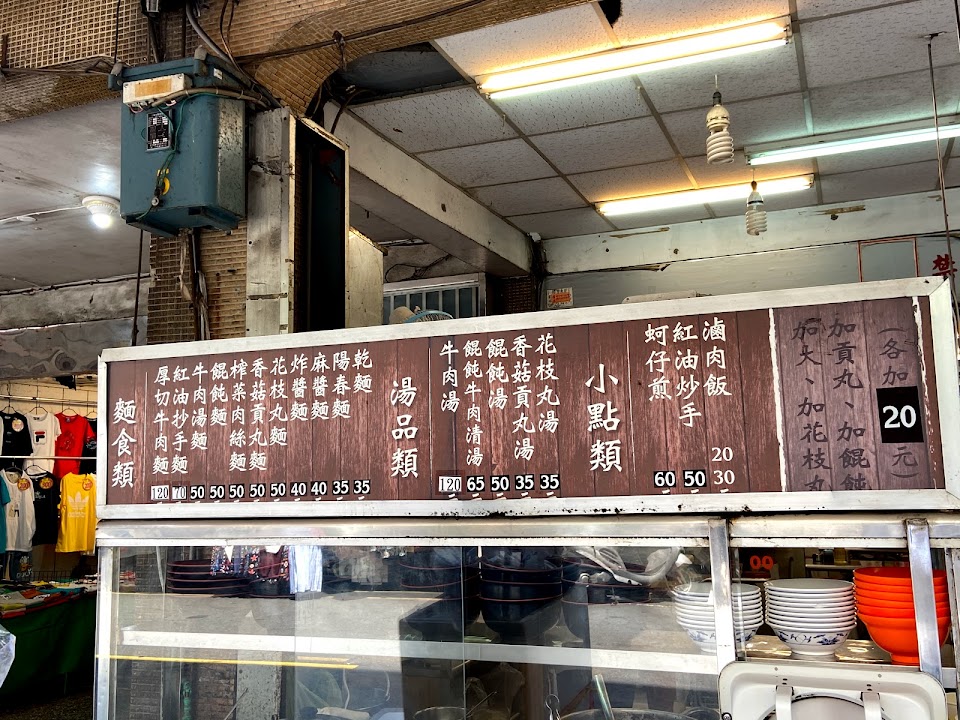 麵食類
厚切牛肉麵 120
紅油抄手麵 70
牛肉湯麵 50
餛飩麵 50
榨菜肉絲麵 50
香菇貢丸麵 50
花枝丸麵 50
炸醬麵 40
麻醬麵 40
陽春麵 35
乾麵 35
湯品類
牛肉湯 120
餛飩牛肉清湯 65
餛飩湯 50
香菇貢丸湯 35
花枝丸湯 35
小點類
蚵仔煎 60
紅油炒手 50
滷肉飯 20 30
加大、加花枝丸
加貢丸、加餛飩
(各加20元)
禁